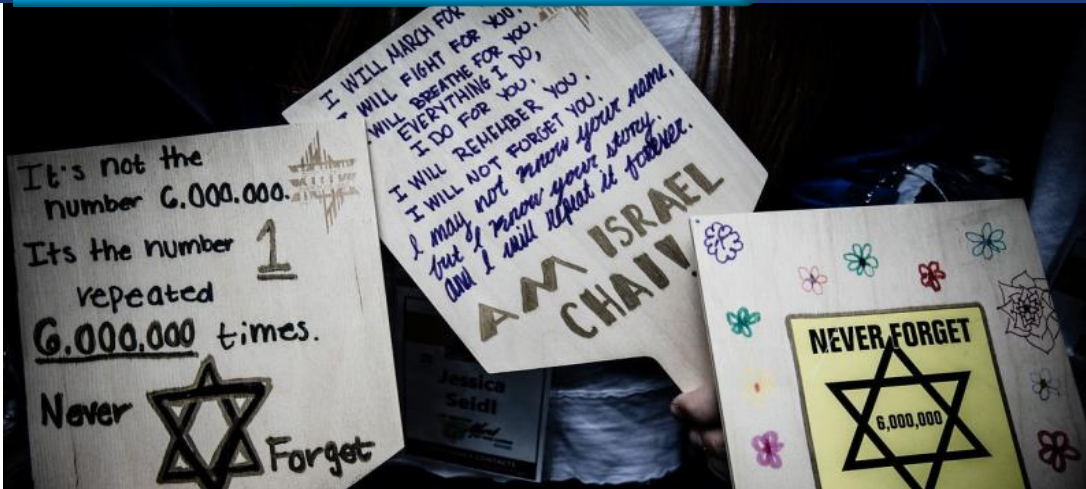 It's not the
number 6.000.000.
Its the number 1
repeated
6.000.000 times.
Never
Forget
I WILL MARCH FOR
WILL FIGHT FOR YOU.
WILL BREATHE FOR YOU.
EVERYTHING I DO,
I DO FOR YOU.
I WILL REMEMBER YOU.
I WILL NOT FORGET YOU.
I may not know your name,
but I know your story.
and I will repeat it forever.
AM ISRAEL
CHAI!
Jessica
Seidl
NEVER FORGET
6,000,000